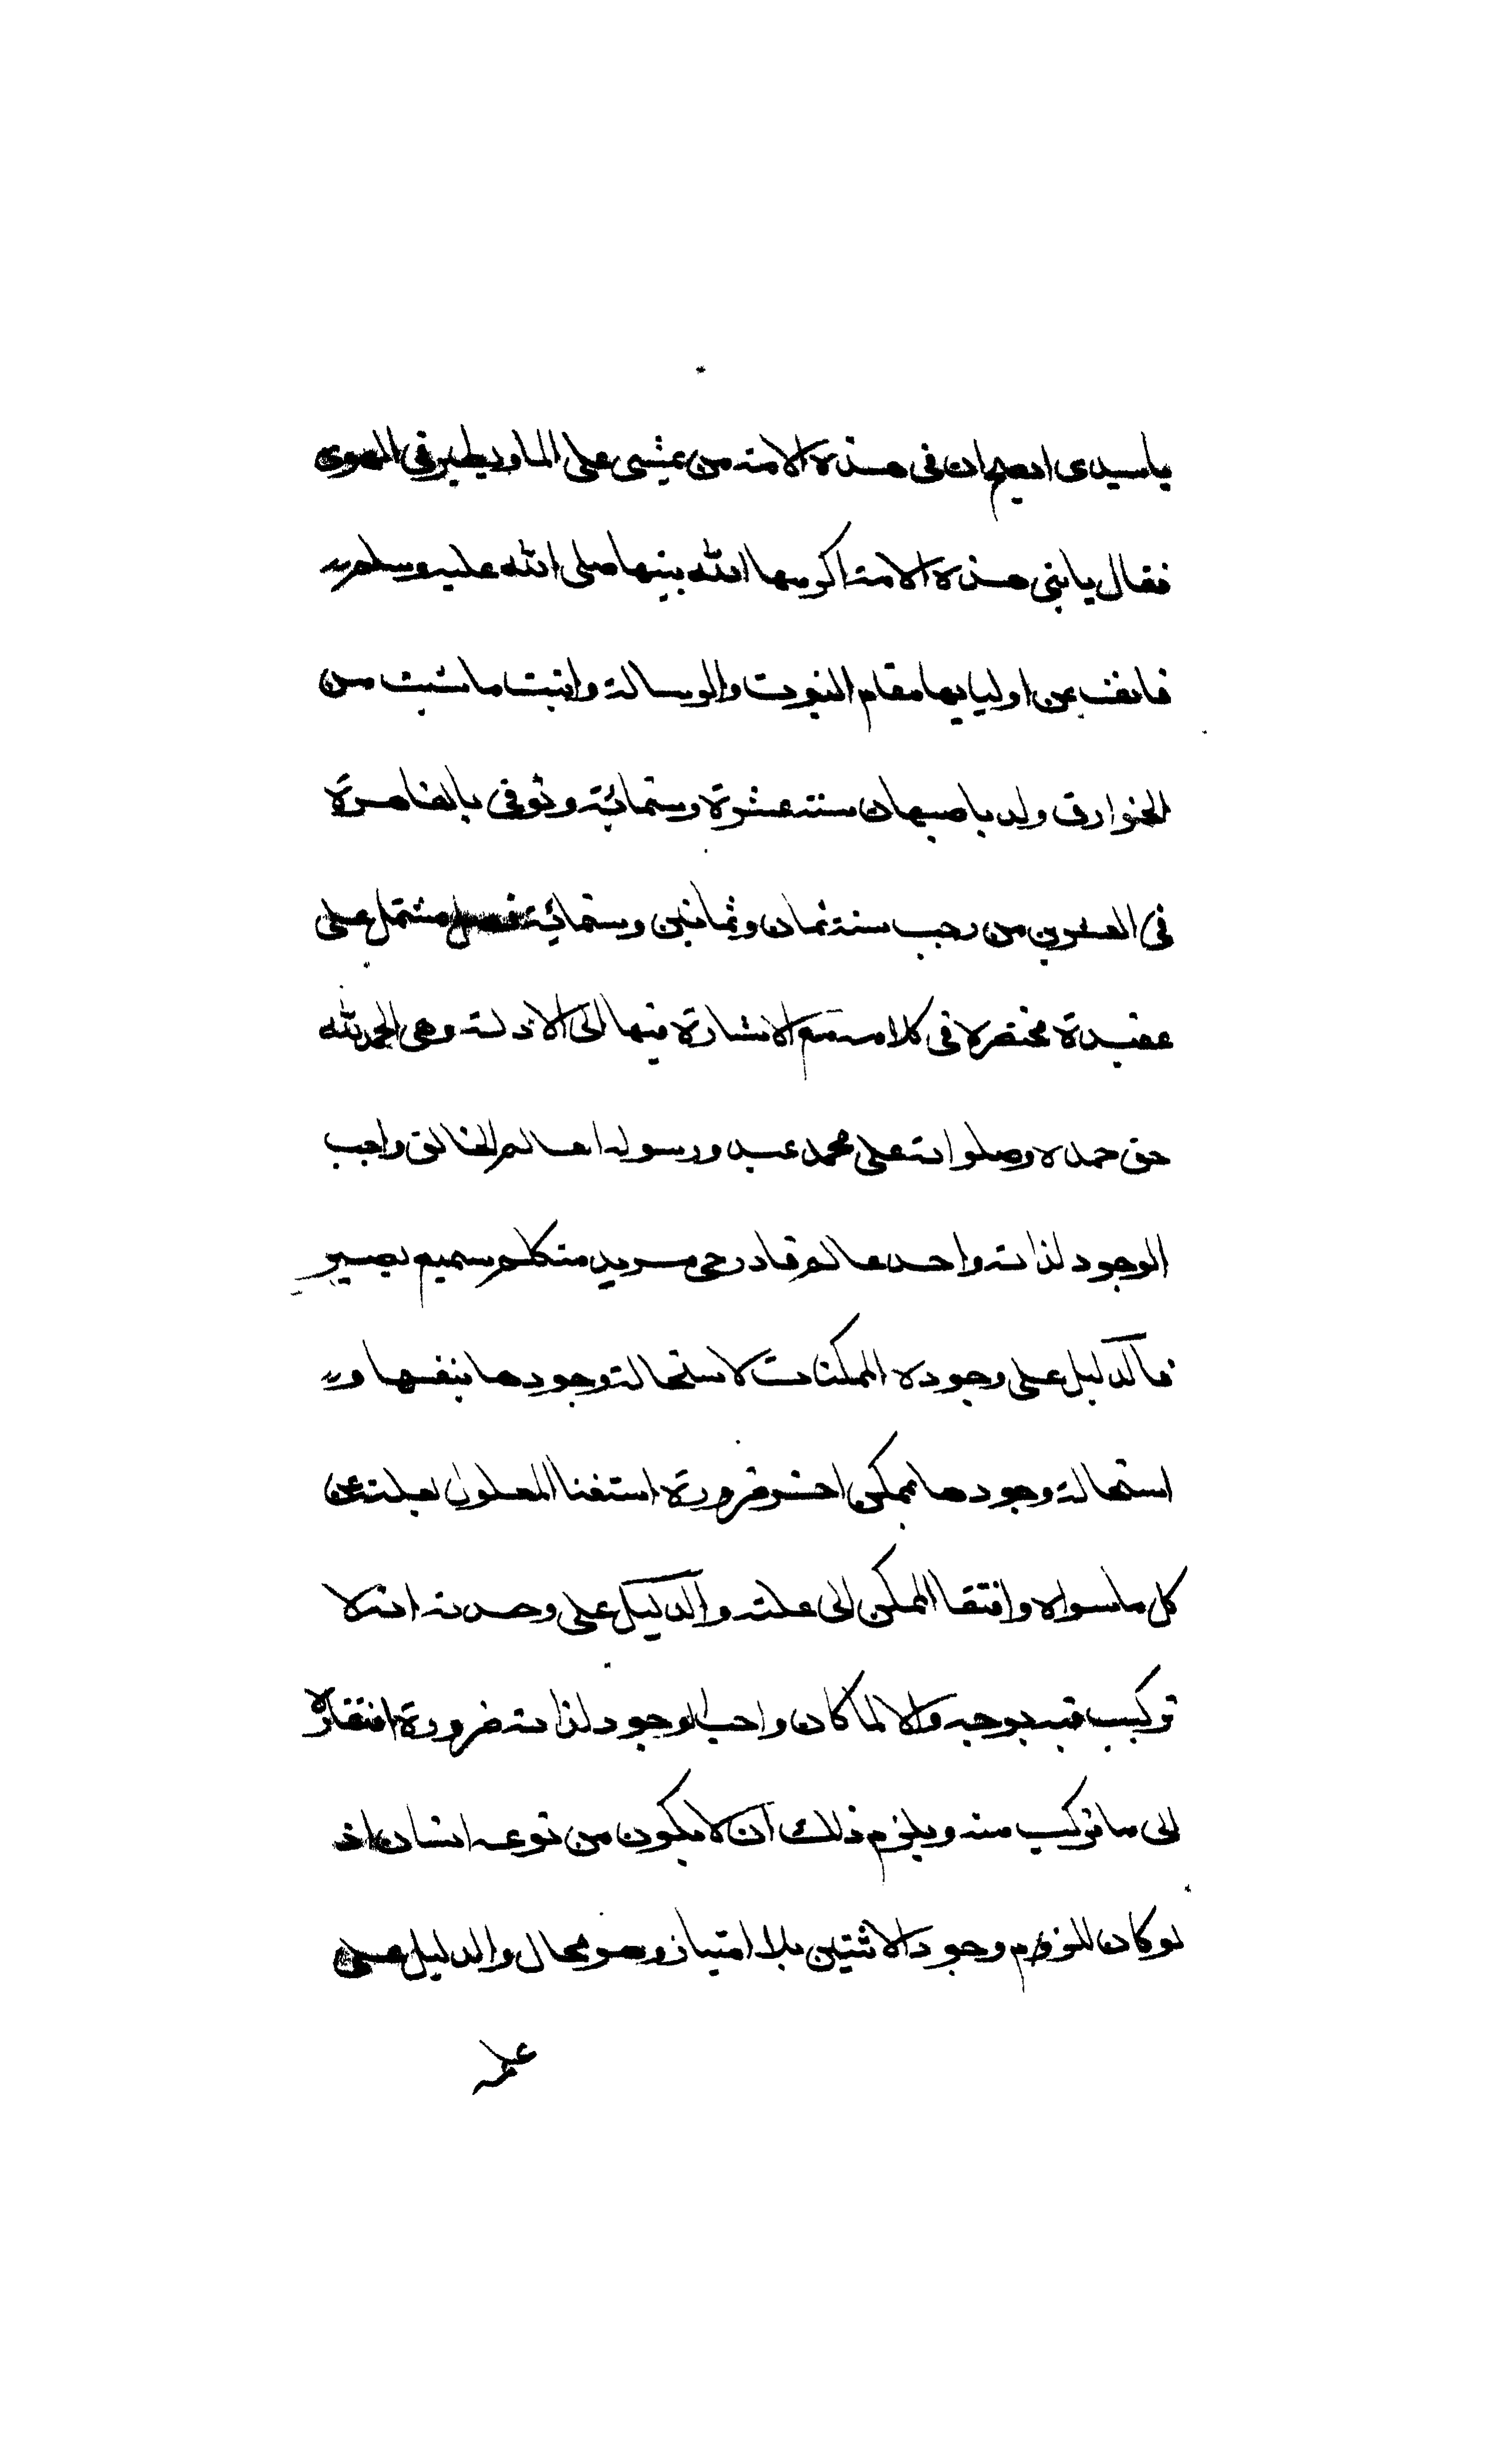 ياسيدى ايصح ان فى هذه الامة من يمشى على الما ويطير فى الهوى
فقال يابنى هذه الامة اكرمها الله بنبيها صلى الله عليه وسلم
فانف عن اوليايها مقام النبوت والرسالة واثبت ماشيت من
الخوارق ولد باصبهان سنة عشرة وستمائة وتوفى بالقاهرة
فى العشرين من رجب سنة ثمان وثمانين وستمائية فصل مشتمل على
عقيدة مختصره فى كلامه مع الاشارة فيها الى الادلة وهى الحمد لله
حق حمده وصلواته على محمد عبده ورسوله العالم الخالق واجب
الوجود لذاته واحد عالم قادر حى مريد متكلم سميع بصير
فالدليل على وجوده الممكنات لاستحالة وجودها بنفسها و
استحالة وجودها بممكن اخر ضرورة استغنا المعلول بعلته عن
كل ماسواه وافتقا الممكن الى علته والدليل على وحدته انه لا
تركيب فيه بوجه والا لما كان واجب الوجود لذاته ضرورة افتقاره
الى ماتركيب منه ويلزم ذلك ان لا يكون من نوعه اثنان اذ
لو كان للزم وجود الاثنين بلا امتياز وهو محال والدليل على
علمه